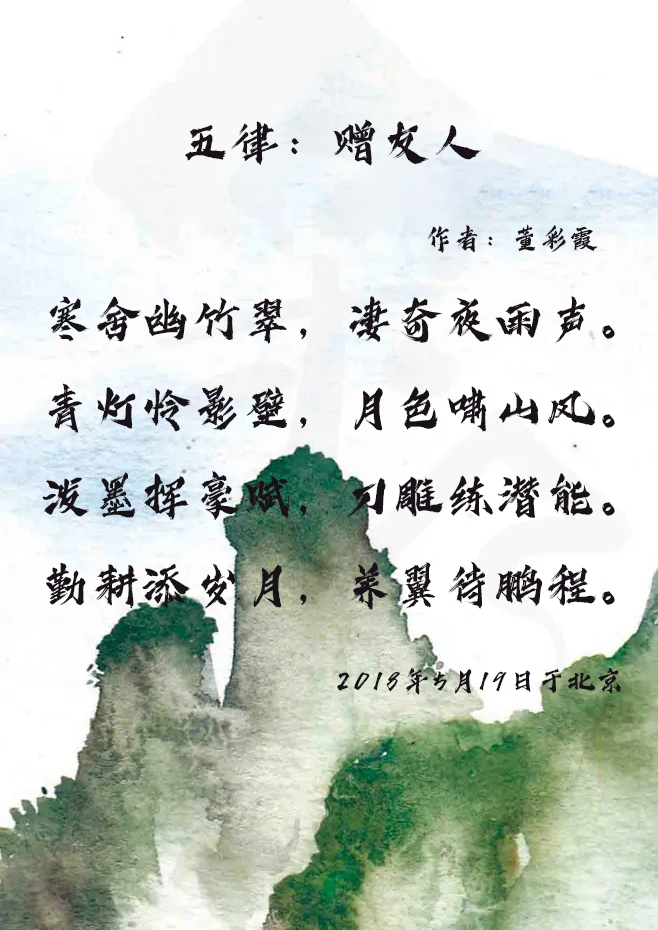 五律：赠友人
作者：董彩霞
寒舍幽竹翠，凄奇夜雨声。
青灯怜影壁，月色啸山风。
泼墨挥豪赋，刁雕练潜能。
勤耕添岁月，养翼待鹏程。
2018年5月19日于北京